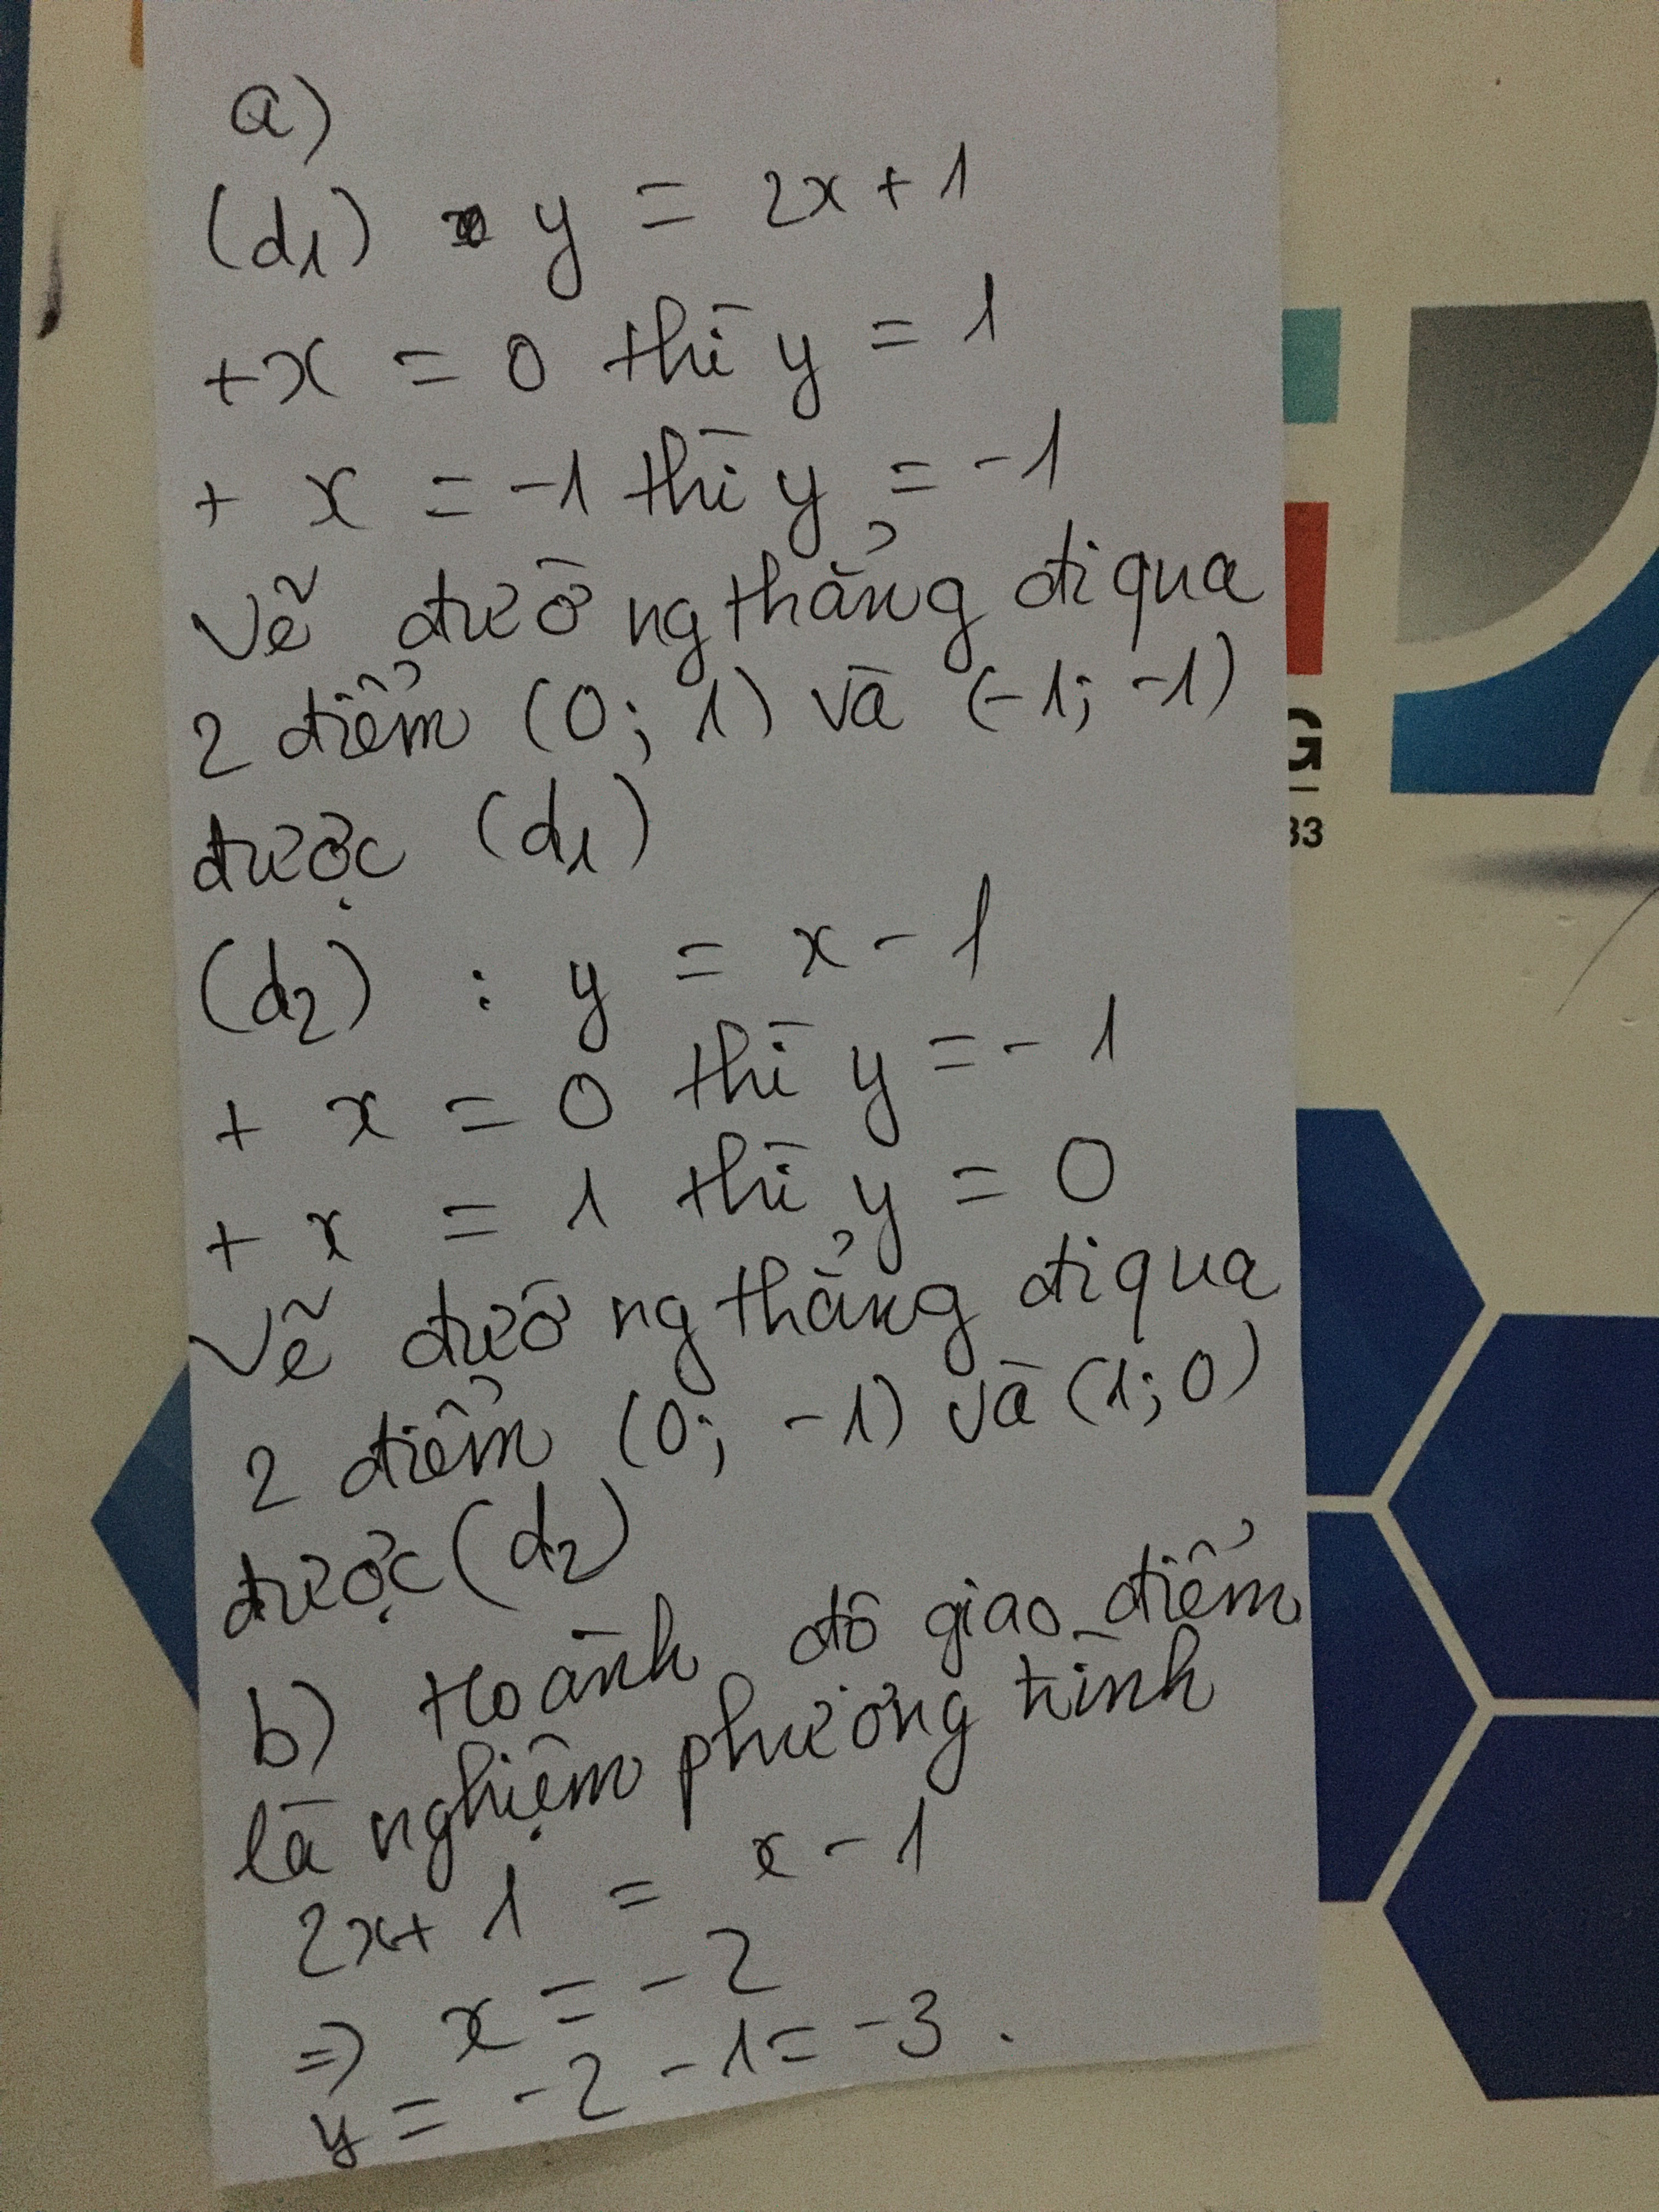 a)
(d1) y = 2x + 1
+x = 0 thì y = 1
+ x = -1 thì y = -1
Vẽ đường thẳng đi qua
2 điểm (0; 1) và (-1; -1)
được (d1)
(d2) : y = x - 1
+ x = 0 thì y = - 1
+ x = 1 thì y = 0
Vẽ đường thẳng đi qua
2 điểm (0; -1) và (1; 0)
được (d2)
b) Hoành độ giao điểm
là nghiệm phương trình
2x + 1 = x - 1
=> x = - 2
y = -2 - 1 = -3.
G
33